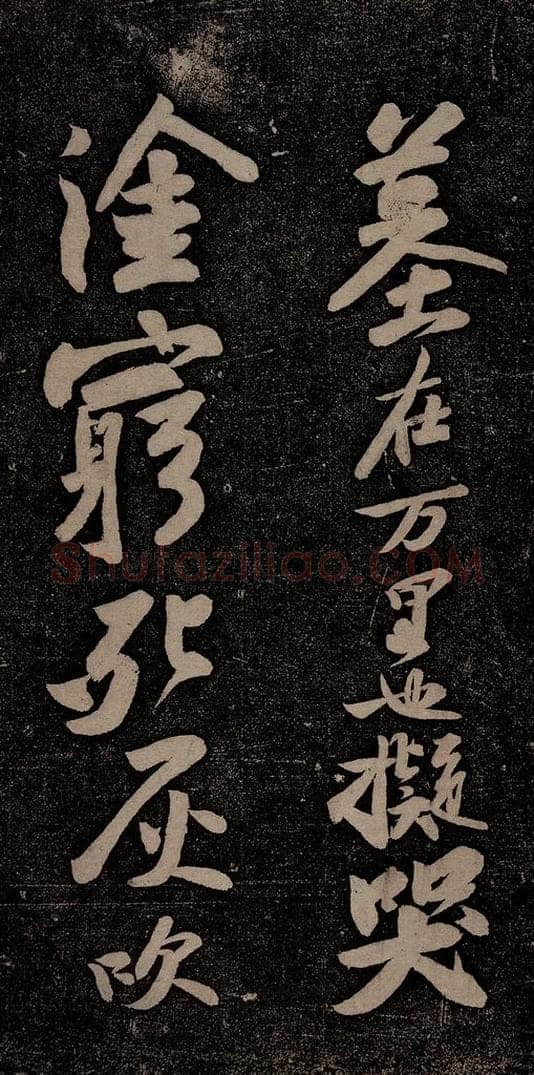 墓在万里也擬哭
塗窮死灰吹
Shufaziliao.COM